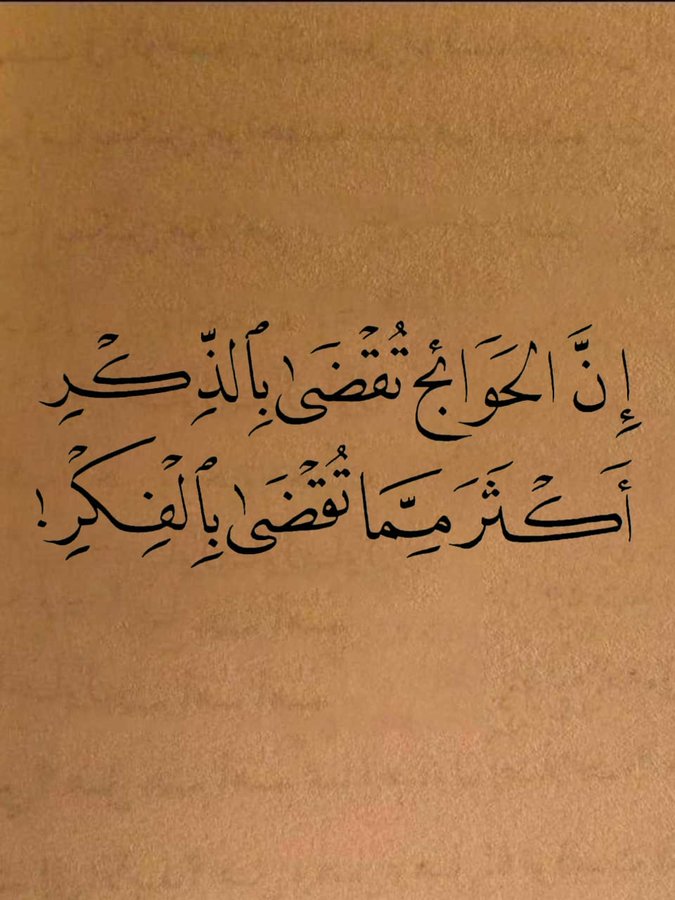 إِنَّ الحَوَائج تُقْضَىٰ بِٱلذِّكْرِ
أَكْثَرَ مِمَّا تُقْضَىٰ بِٱلْفِكْرِ!